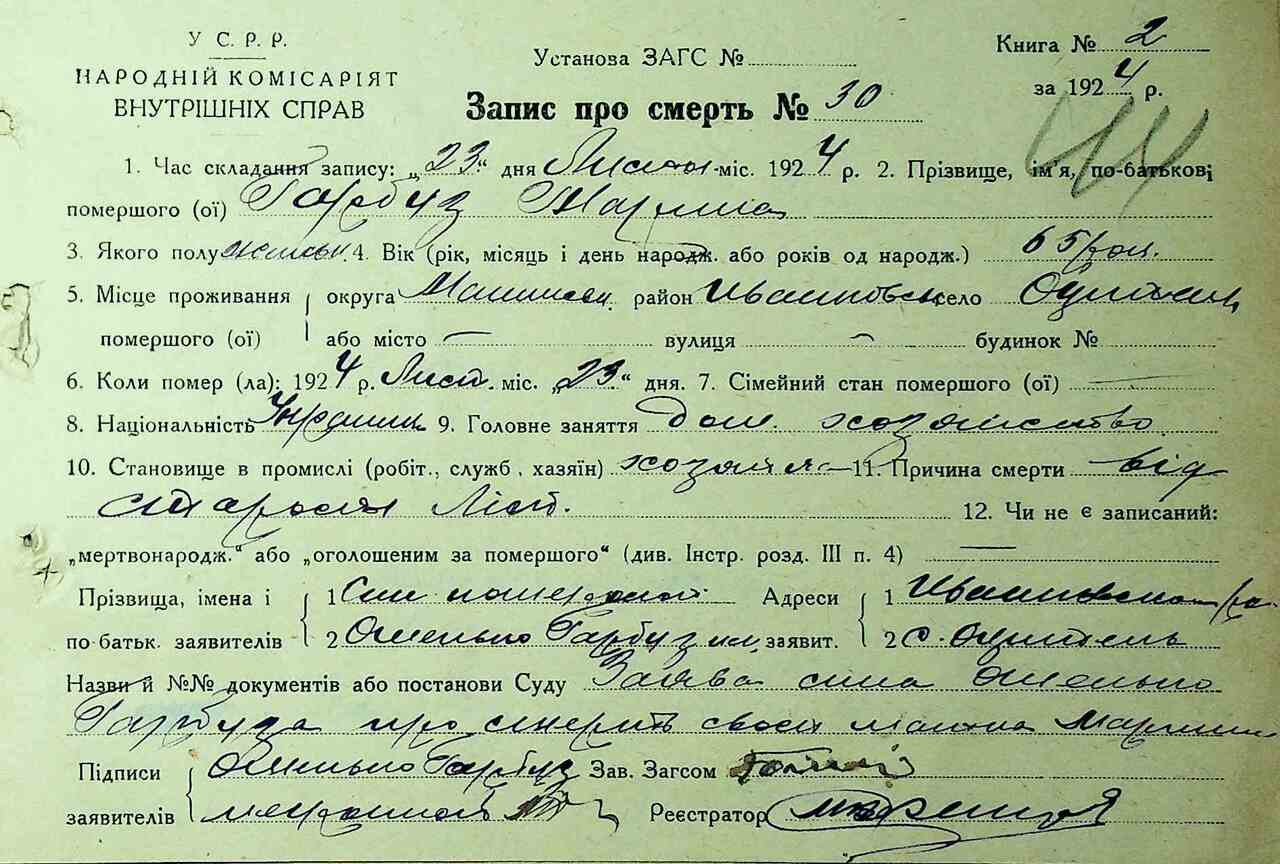 У С. Р. Р.
НАРОДНІЙ КОМІСАРІЯТ
ВНУТРІШНІХ СПРАВ
Установа ЗАГС №
Книга № 2
за 1924 р.
Запис про смерть № 30
44
1. Час складання запису: „23“ дня Листоп міс. 1924 р. 2. Прізвище, ім'я, по-батькові
помершого (ої) Гарбуз Марина
3. Якого полу жіньк. 4. Вік (рік, місяць і день народж. або років од народж.) 65 рок.
5. Місце проживання округа район Ивашковськ село Одитель
помершого (ої) або місто — вулиця — будинок №
6. Коли помер (ла): 1924 р. Лист. міс. „23“ дня. 7. Сімейний стан помершого (ої) —
8. Національність Украинк 9. Головне заняття дом. хозяиство
10. Становище в промислі (робіт., служб, хазяїн) хозяйка 11. Причина смерти від
старости Літ. 12. Чи не є записаний:
„мертвонародж.“ або „оголошеним за помершого“ (див. Інстр. розд. III п. 4) —
Прізвища, імена і 1 Син помершої Адреси 1
по батьк. заявителів 2 Омелько Гарбуз заявит. 2 с. Одитель
Назви й №№ документів або постанови Суду Заява сина Омелько
Гарбуза про смерть своєї матки Марини
Підписи Омелько Гарбуз Зав. Загсом
заявителів неграмотний Реєстратор